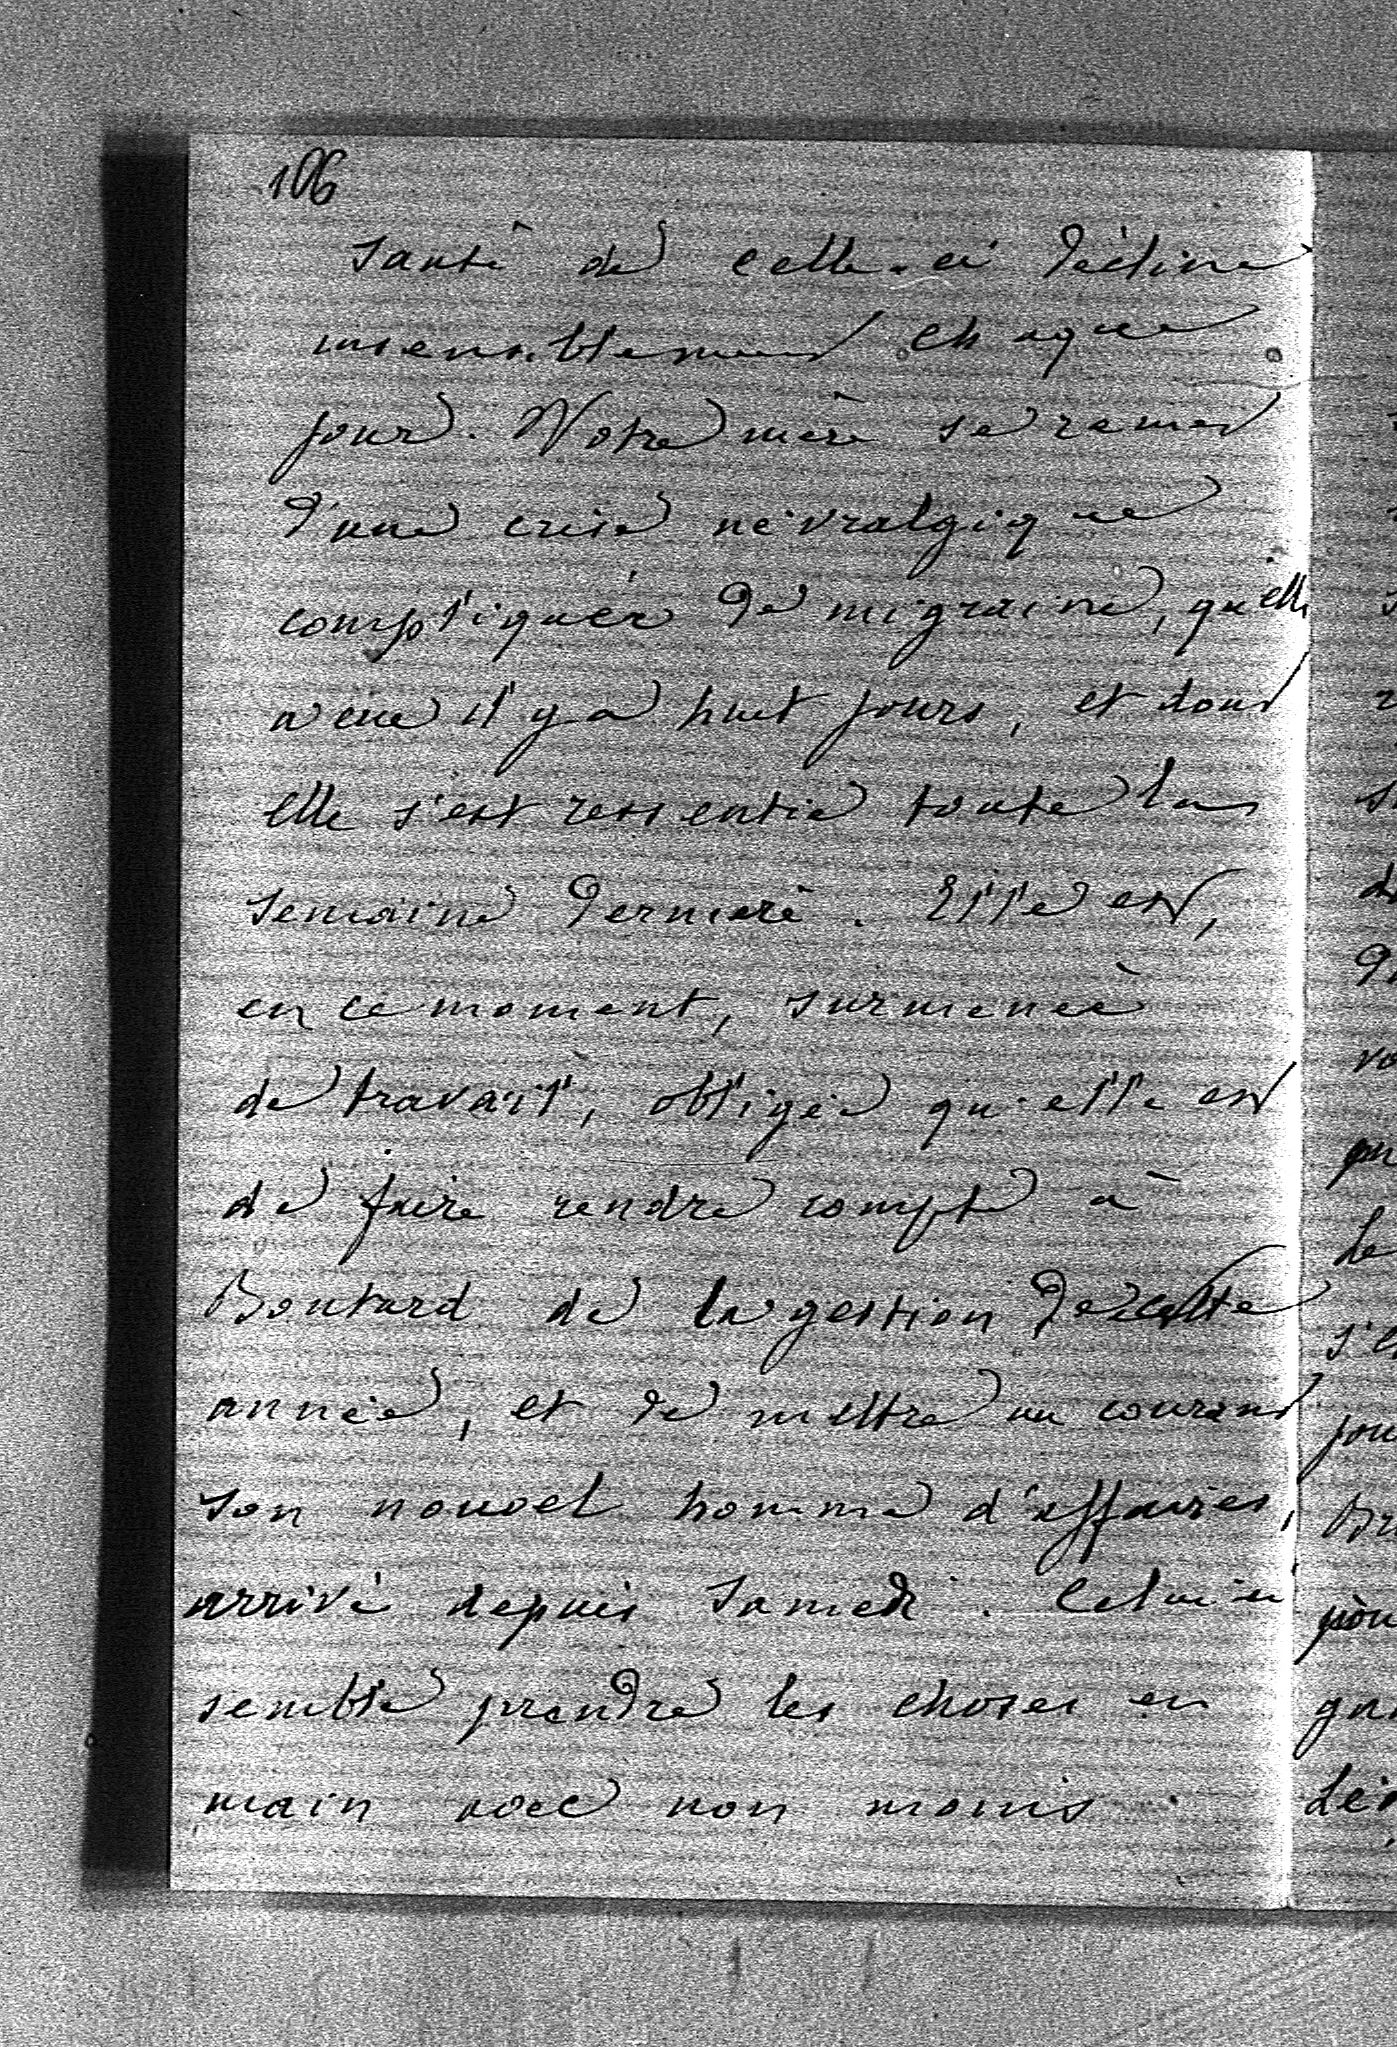 106
santé de celle-ci décline
insensiblement chaque
jour. Notre mère se remet
d'une crise névralgique
compliquée de migraine, qu'elle
a eue il y a huit jours, et dont
elle s'est ressentie toute la
semaine dernière. Elle est,
en ce moment, surmenée
de travail, obligée qu'elle est
de faire rendre compte à
Boutard de la gestion de cette
année, et de mettre au courant
son nouvel homme d'affaires,
arrivé depuis Samedi. Celui-ci
semble prendre les choses en
main avec non moins